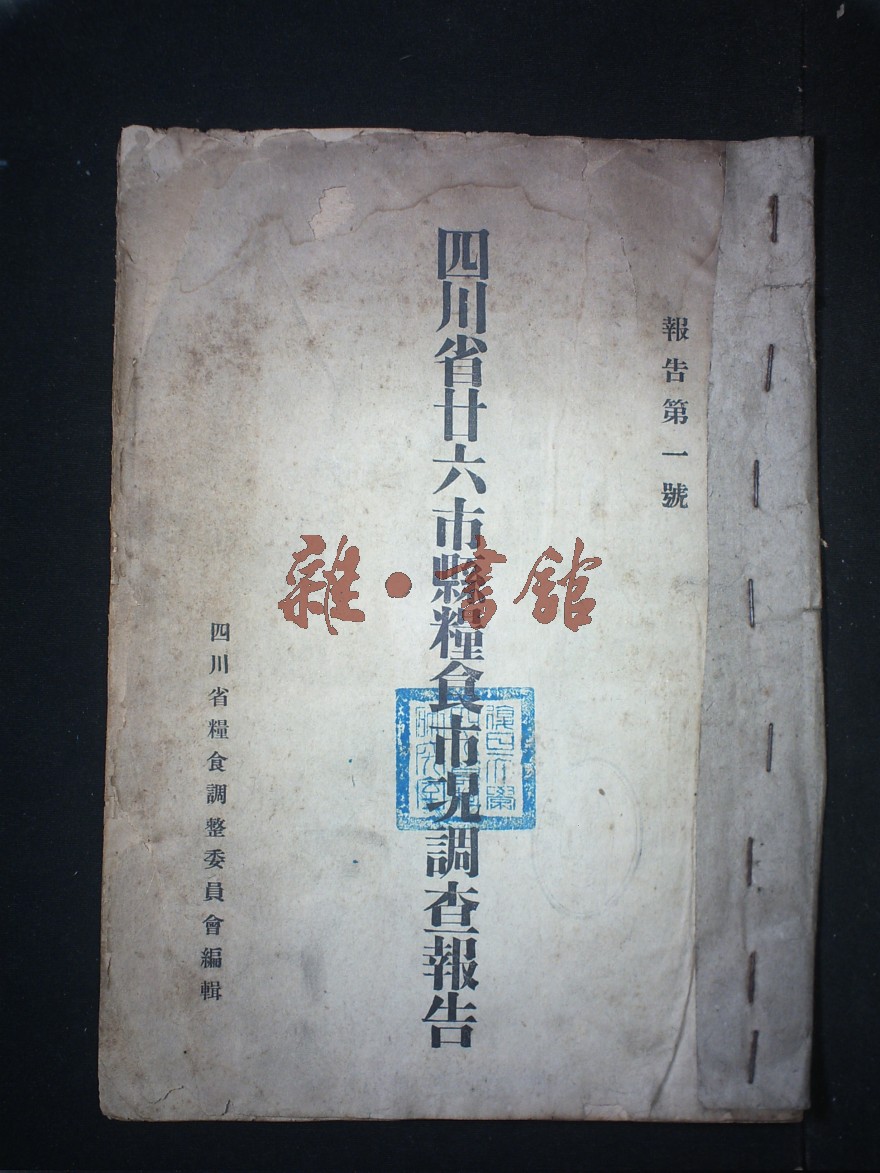 報告第一號
四川省廿六市縣糧食市況調查報告
四川省糧食調整委員會編輯
雜·書館